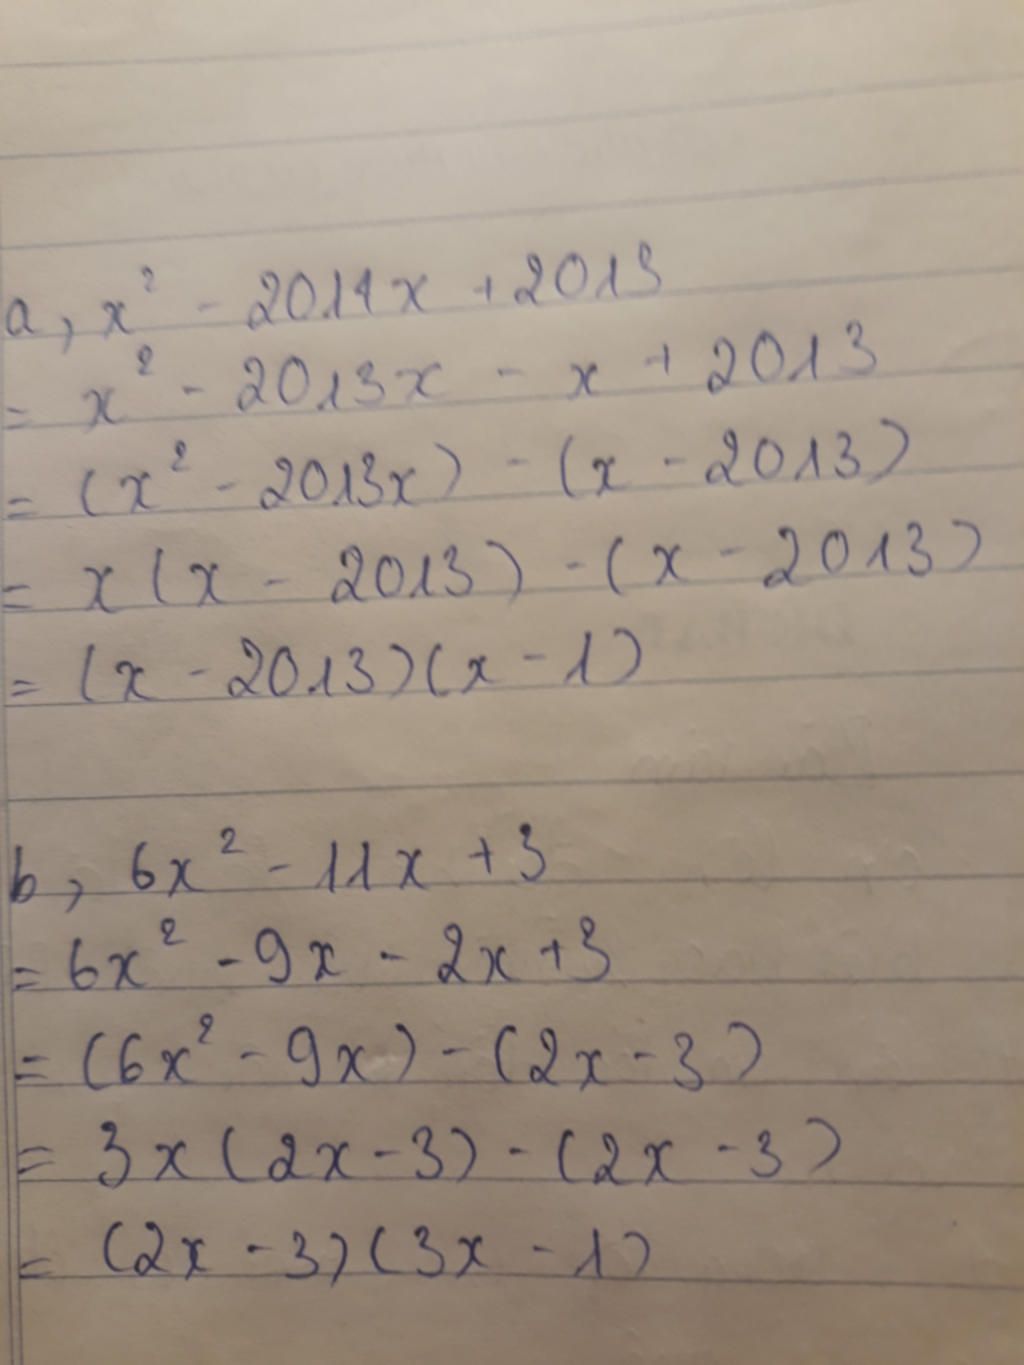 a, x² - 2014x + 2013
= x² - 2013x - x + 2013
= (x² - 2013x) - (x - 2013)
= x(x - 2013) - (x - 2013)
= (x - 2013)(x - 1)
b, 6x² - 11x + 3
= 6x² - 9x - 2x + 3
= (6x² - 9x) - (2x - 3)
= 3x(2x - 3) - (2x - 3)
= (2x - 3)(3x - 1)